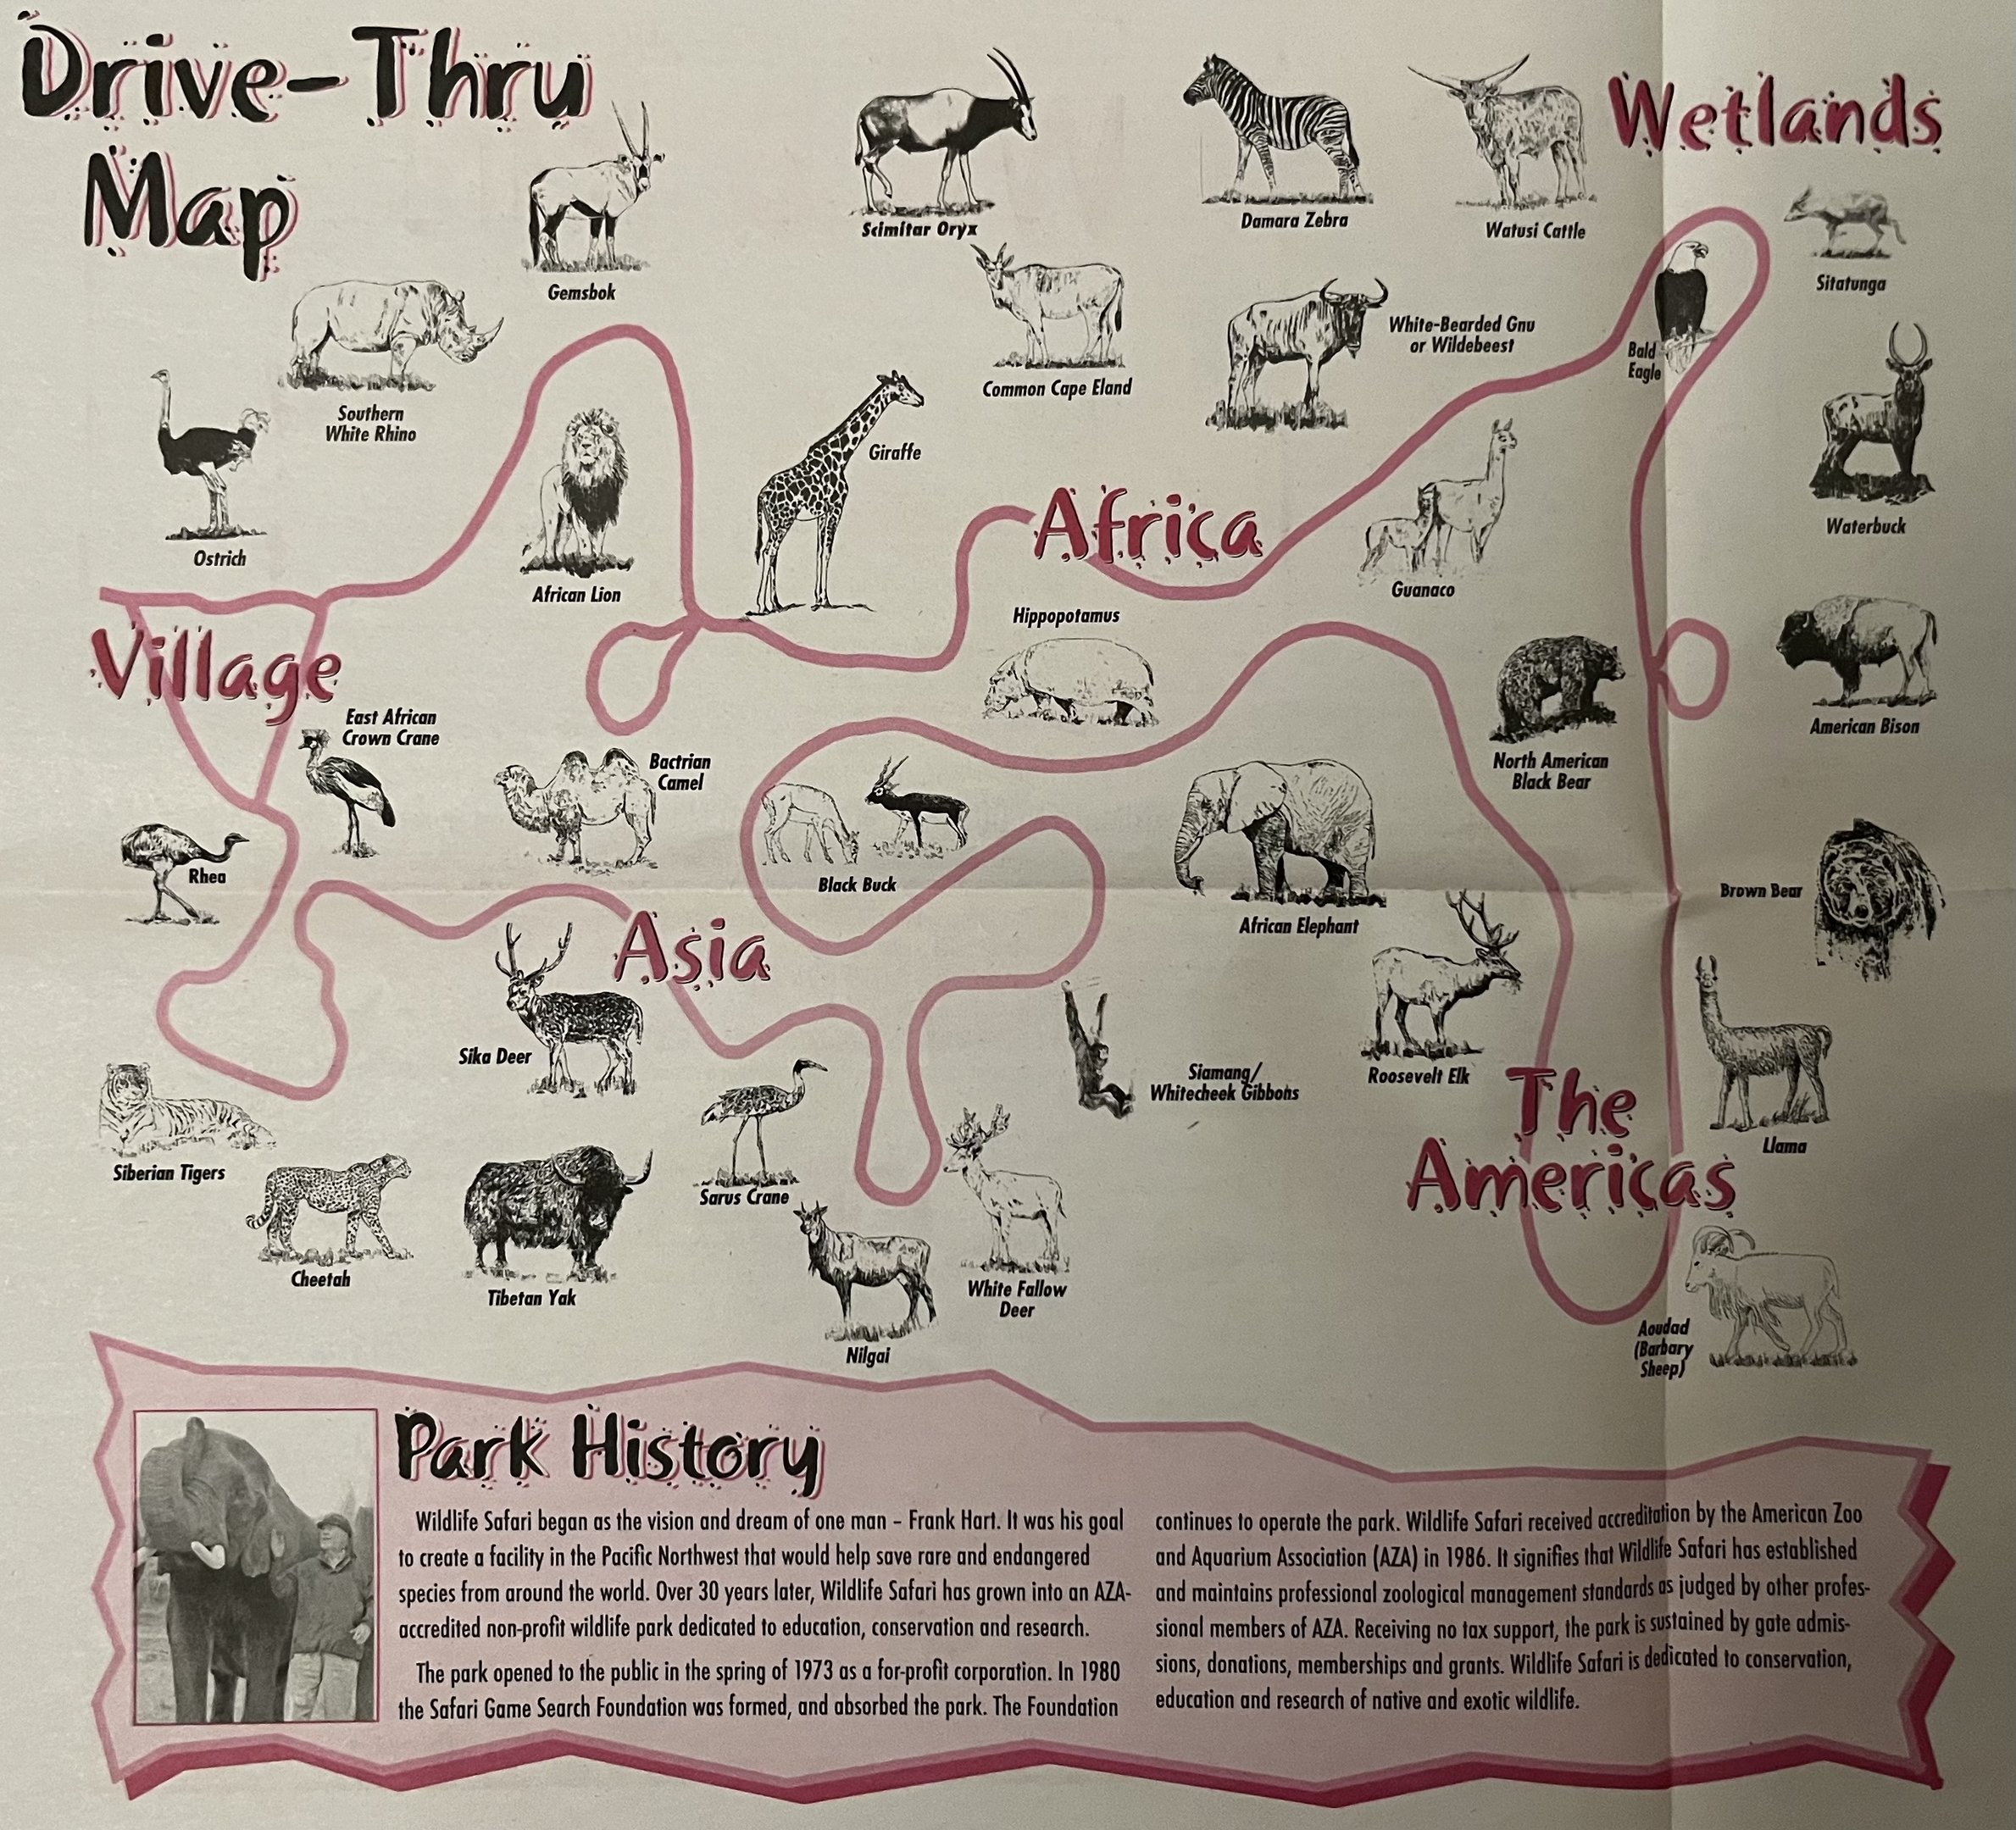 Drive-Thru
Map
Gemsbok
Scimitar Oryx
Damara Zebra
Watusi Cattle
Wetlands
Sitatunga
Southern
White Rhino
Common Cape Eland
White-Bearded Gnu
or Wildebeest
Bald
Eagle
Ostrich
African Lion
Giraffe
Africa
Guanaco
Waterbuck
Village
Hippopotamus
East African
Crown Crane
Bactrian
Camel
North American
Black Bear
American Bison
Rhea
Black Buck
African Elephant
Brown Bear
Asia
Sika Deer
Siamang/
Whitecheek Gibbons
Roosevelt Elk
The
Americas
Llama
Siberian Tigers
Cheetah
Tibetan Yak
Sarus Crane
Nilgai
White Fallow
Deer
Aoudad
(Barbary
Sheep)
Park History
Wildlife Safari began as the vision and dream of one man – Frank Hart. It was his goal
to create a facility in the Pacific Northwest that would help save rare and endangered
species from around the world. Over 30 years later, Wildlife Safari has grown into an AZA-
accredited non-profit wildlife park dedicated to education, conservation and research.
The park opened to the public in the spring of 1973 as a for-profit corporation. In 1980
the Safari Game Search Foundation was formed, and absorbed the park. The Foundation
continues to operate the park. Wildlife Safari received accreditation by the American Zoo
and Aquarium Association (AZA) in 1986. It signifies that Wildlife Safari has established
and maintains professional zoological management standards as judged by other profes-
sional members of AZA. Receiving no tax support, the park is sustained by gate admis-
sions, donations, memberships and grants. Wildlife Safari is dedicated to conservation,
education and research of native and exotic wildlife.